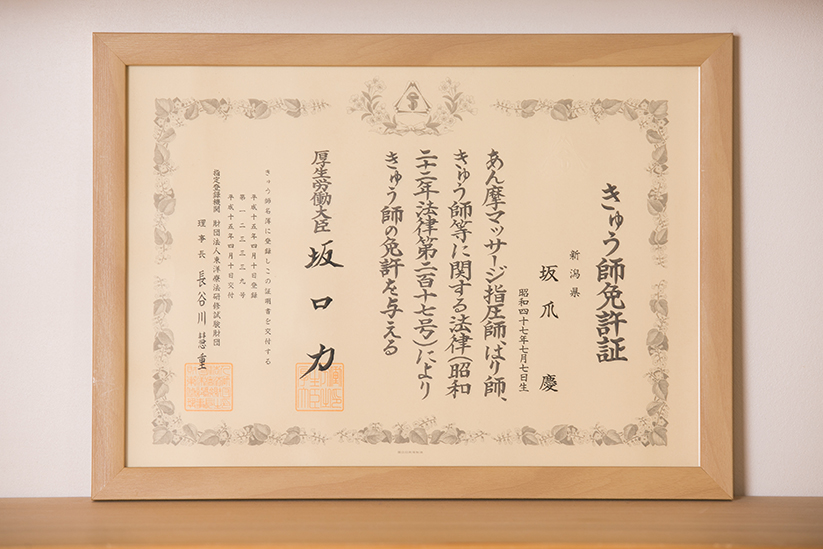 きゅう師免許証
新潟県
坂爪慶
昭和四十七年七月七日生
あん摩マッサージ指圧師、はり師、
きゅう師等に関する法律(昭和
二十二年法律第二百十七号)により
きゅう師の免許を与える
厚生労働大臣 坂口力
きゅう師名簿に登録しこの証明書を交付する
平成十五年四月十日登録
第一二三三三九号
平成十五年四月十日交付
指定登録機関 財団法人東洋療法研修試験財団
理事長 長谷川慧重